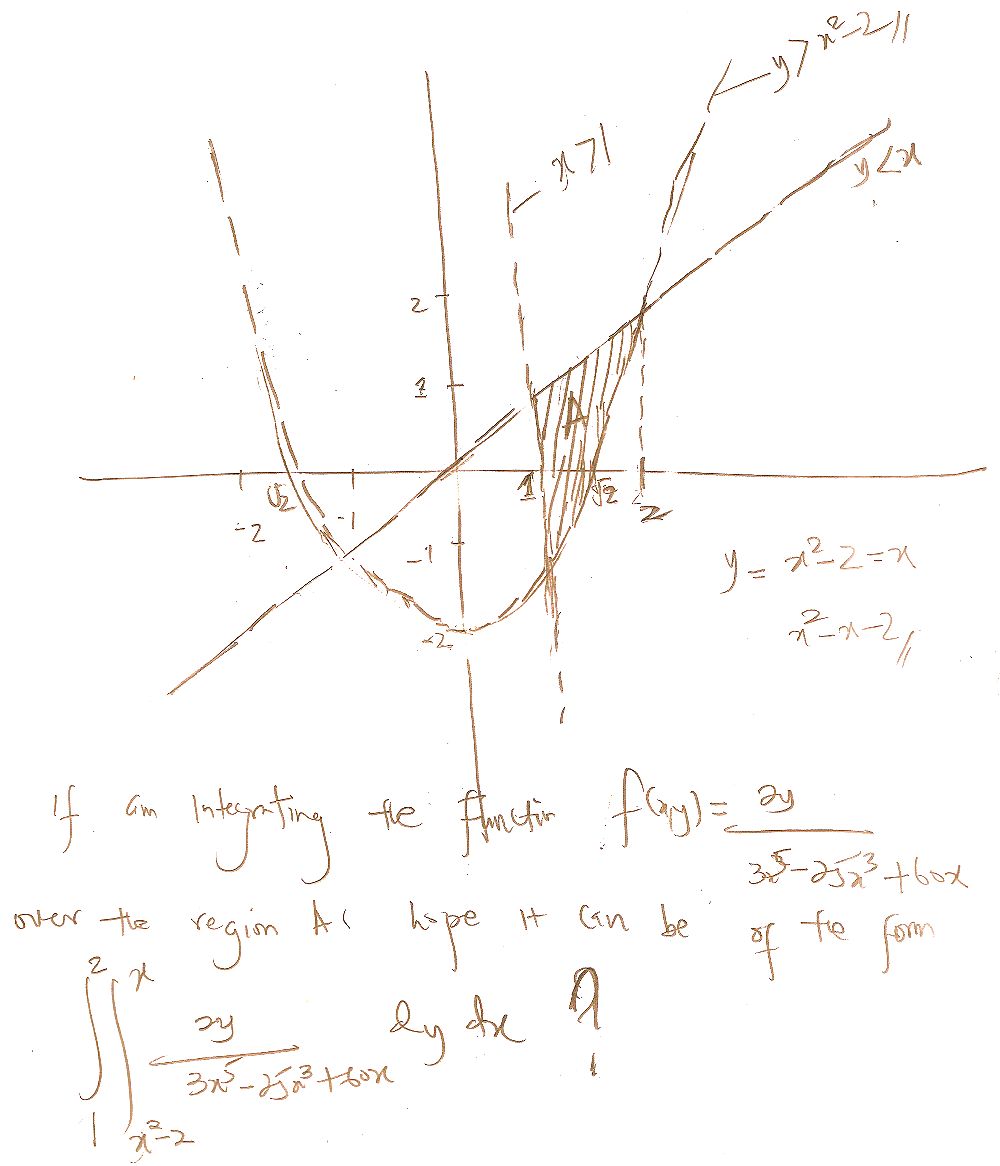 y > x² - 2 //
x > 1
y < x
2
1
A
-2
√2
-1
1
√2
2
-1
-2
y = x² - 2 = x
x² - x - 2 //
If am Integrating the function f(x,y) = 2y / 3x⁵ - 25x³ + 60x
over the region A, hope it can be of the form
∫₁² ∫ₓ²₋₂ˣ 2y / 3x⁵ - 25x³ + 60x dy dx ?